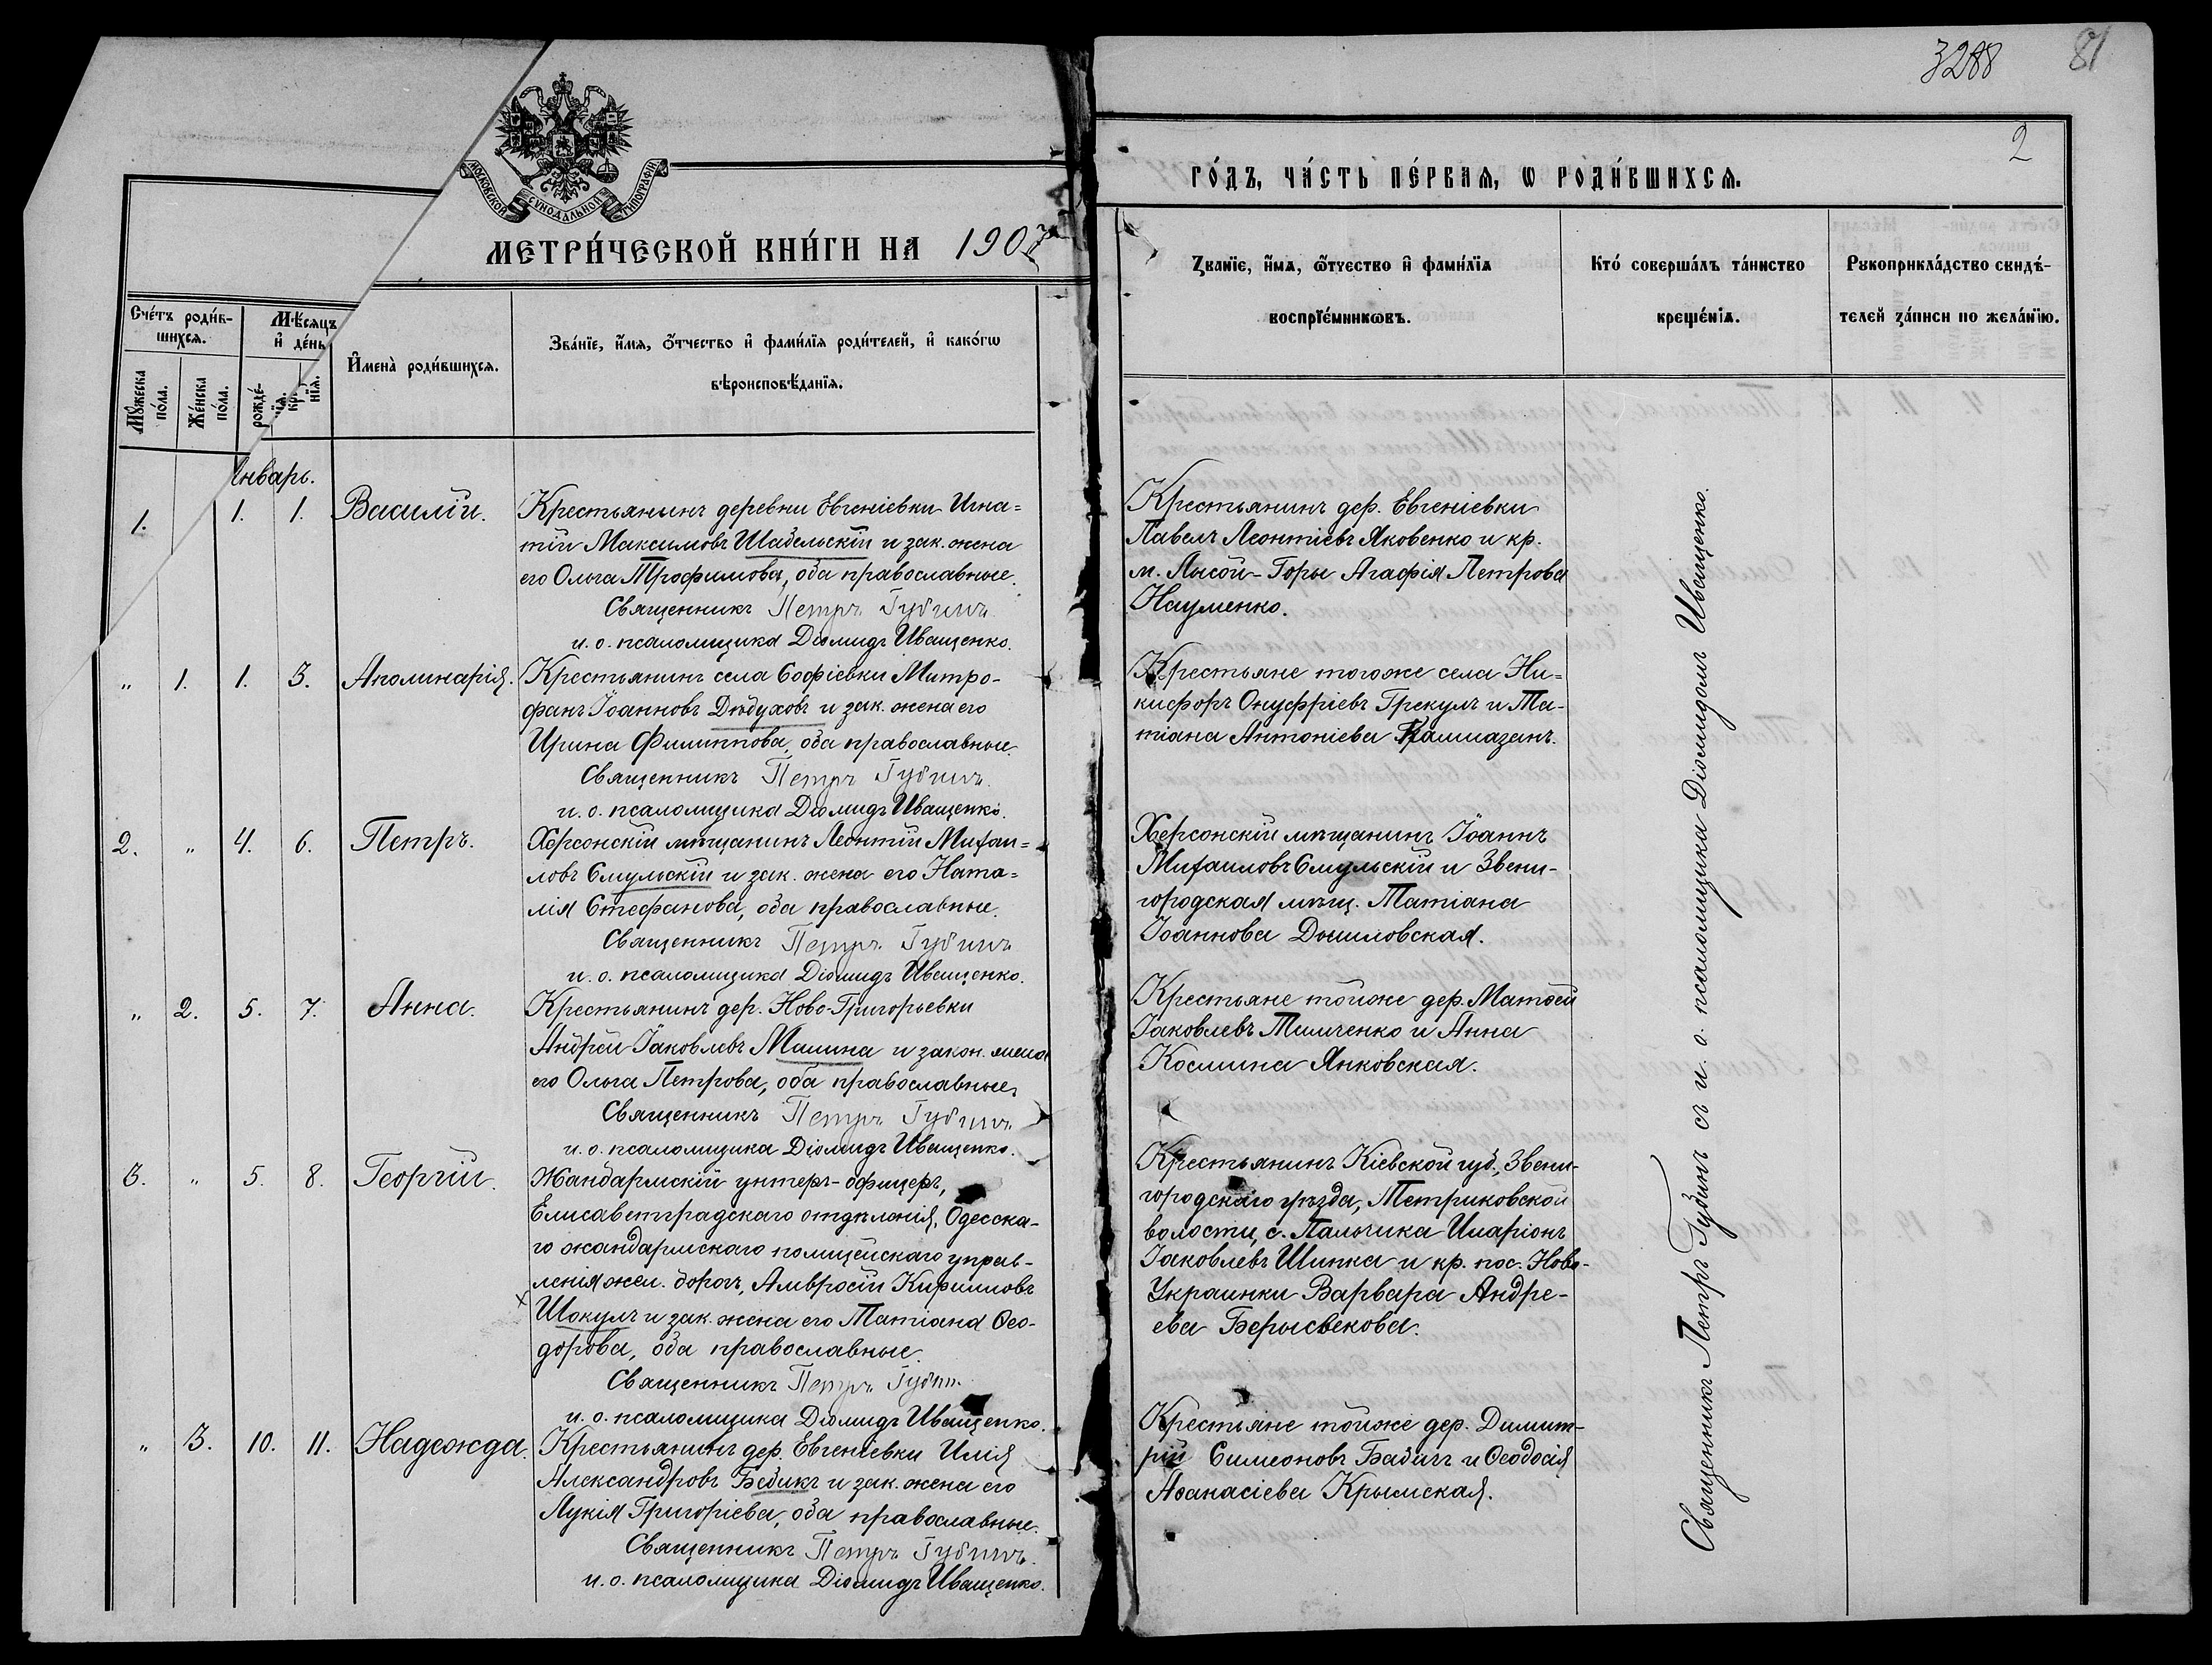 3288
81
2
МОСКОВСКОЙ СѴНОДАЛЬНОЙ ТИПОГРАФІИ
МЕТРИ́ЧЕСКОЙ КНИ́ГИ НА 1907
ГО́ДЪ, ЧА́СТЬ ПЕ́РВАѦ, Ѡ РОДИ́ВШИХСѦ.
Сче́тъ роди́в-
шихсѧ.
Мꙋ́жеска по́ла.
Же́нска по́ла.
Мѣ́сѧцъ
и҆ де́нь
рожде́-
нїѧ.
И҆мена̀ роди́вшихсѧ.
Зва́нїе, и҆́мѧ, ѻ҆́тчество и҆ фами́лїѧ роди́телей, и҆ како́гѡ
вѣроисповѣ́данїѧ.
Зва́нїе, и҆́мѧ, ѻ҆́тчество и҆ фами́лїѧ
воспрїе́мникѡвъ.
Кто́ соверша́лъ та́инство
креще́нїѧ.
Рꙋкоприкла́дство свидѣ́-
телей за́писи по жела́нїю.
нварь.
1. 1. 1. Василій.
Крестьянинъ деревни Евгеніевки Игна=
тій Максимовъ Шабельскій и зак. жена
его Ольга Трофимова, оба православные.
Священникъ Петръ Губинъ
и. о. псаломщика Діомидъ Иващенко.
Крестьянинъ дер. Евгеніевки
Павелъ Леонтіевъ Яковенко и кр.
м. Лысой-Горы Агафія Петрова
Науменко.
" 1. 1. 3. Аполинарія.
Крестьянинъ села Софіевки Митро-
фанъ Іоанновъ Дѣдуховъ и зак. жена его
Ирина Филиппова, оба православные.
Священникъ Петръ Губинъ.
и. о. псаломщика Діомидъ Иващенко.
Крестьяне того же села Ни=
кифоръ Онуфріевъ Грекулъ и Та-
тіана Антоніева Камлазанъ.
2. " 4. 6. Петръ.
Херсонскій мѣщанинъ Леонтій Михаи=
ловъ Смульскій и зак. жена его Ната=
лія Стефанова, оба православные.
Священникъ Петръ Губинъ
и. о. псаломщика Діомидъ Иващенко.
Херсонскій мѣщанинъ Іоаннъ
Михаиловъ Смульскій и Звени-
городская мѣщ. Татіана
Іоаннова Даниловская.
" 2. 5. 7. Анна.
Крестьянинъ дер. Ново-Григорьевки
Андрей Іаковлевъ Малина и закон. жена
его Ольга Петрова, оба православные.
Священникъ Петръ Губинъ
и. о. псаломщика Діомидъ Иващенко.
Крестьяне той же дер. Матѳей
Іаковлевъ Тимченко и Анна
Космина Янковская.
3. " 5. 8. Георгій.
Жандармскій унтеръ-офицеръ,
Елисаветградскаго отдѣленія, Одесска-
го жандармскаго полицейскаго управ-
ленія жел. дорогъ, Амвросій Кирилловъ
х Шокулъ и зак. жена его Татіана Ѳео-
дорова, оба православные.
Священникъ Петръ Губинъ
и. о. псаломщика Діомидъ Иващенко.
Крестьянинъ Кіевской губ., Звени-
городскаго уѣзда,
волости, с. Пальчика Иларіонъ
Іаковлевъ Шинка и кр. пос. Ново-
Украинки Варвара Андре-
ева
" 3. 10. 11. Надежда.
Крестьянинъ дер. Евгеніевки Илія
Александровъ Бабикъ и зак. жена его
Лукія Григоріева, оба православные.
Священникъ Петръ Губинъ.
и. о. псаломщика Діомидъ Иващенко.
Крестьяне той же дер. Димит-
рій Симеоновъ Бабичъ и Ѳеодосія
Аѳанасіева Крымская.
Священникъ Петръ Губинъ съ и. о. псаломщика Діомидомъ Иващенко.